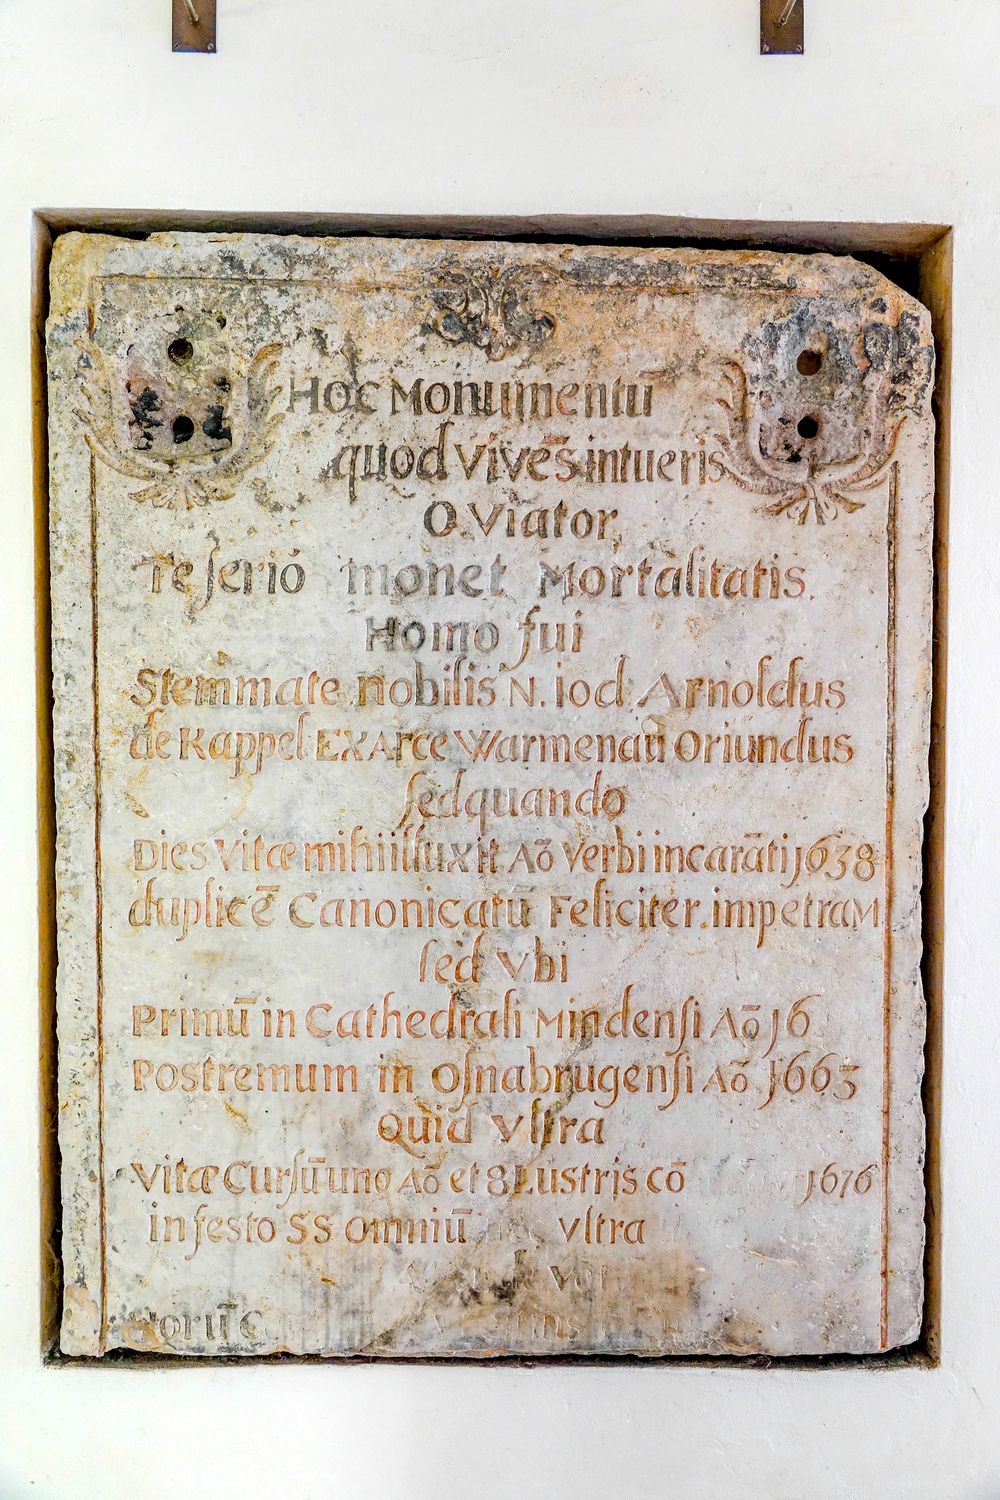 Hoc Monumentū
quod Vivēs intueris
O. Viator,
Te serió monet Mortalitatis.
Homo fui
Stemmate nobilis N. iod. Arnoldus
de Kappel Ex Arce Warmenaū Oriundus
sed quando
Dies Vitæ mihi illuxit Aō Verbi incarāti 1638
duplicē Canonicatū Feliciter impetraM
sed Vbi
Primū in Cathedrali Mindensi Aō 16
Postremum in Osnabrugensi Aō 1663
Quid Vltra
Vitæ Cursū uno Aō et 8 Lustris cō 1676
in festo SS Omniū Vltra